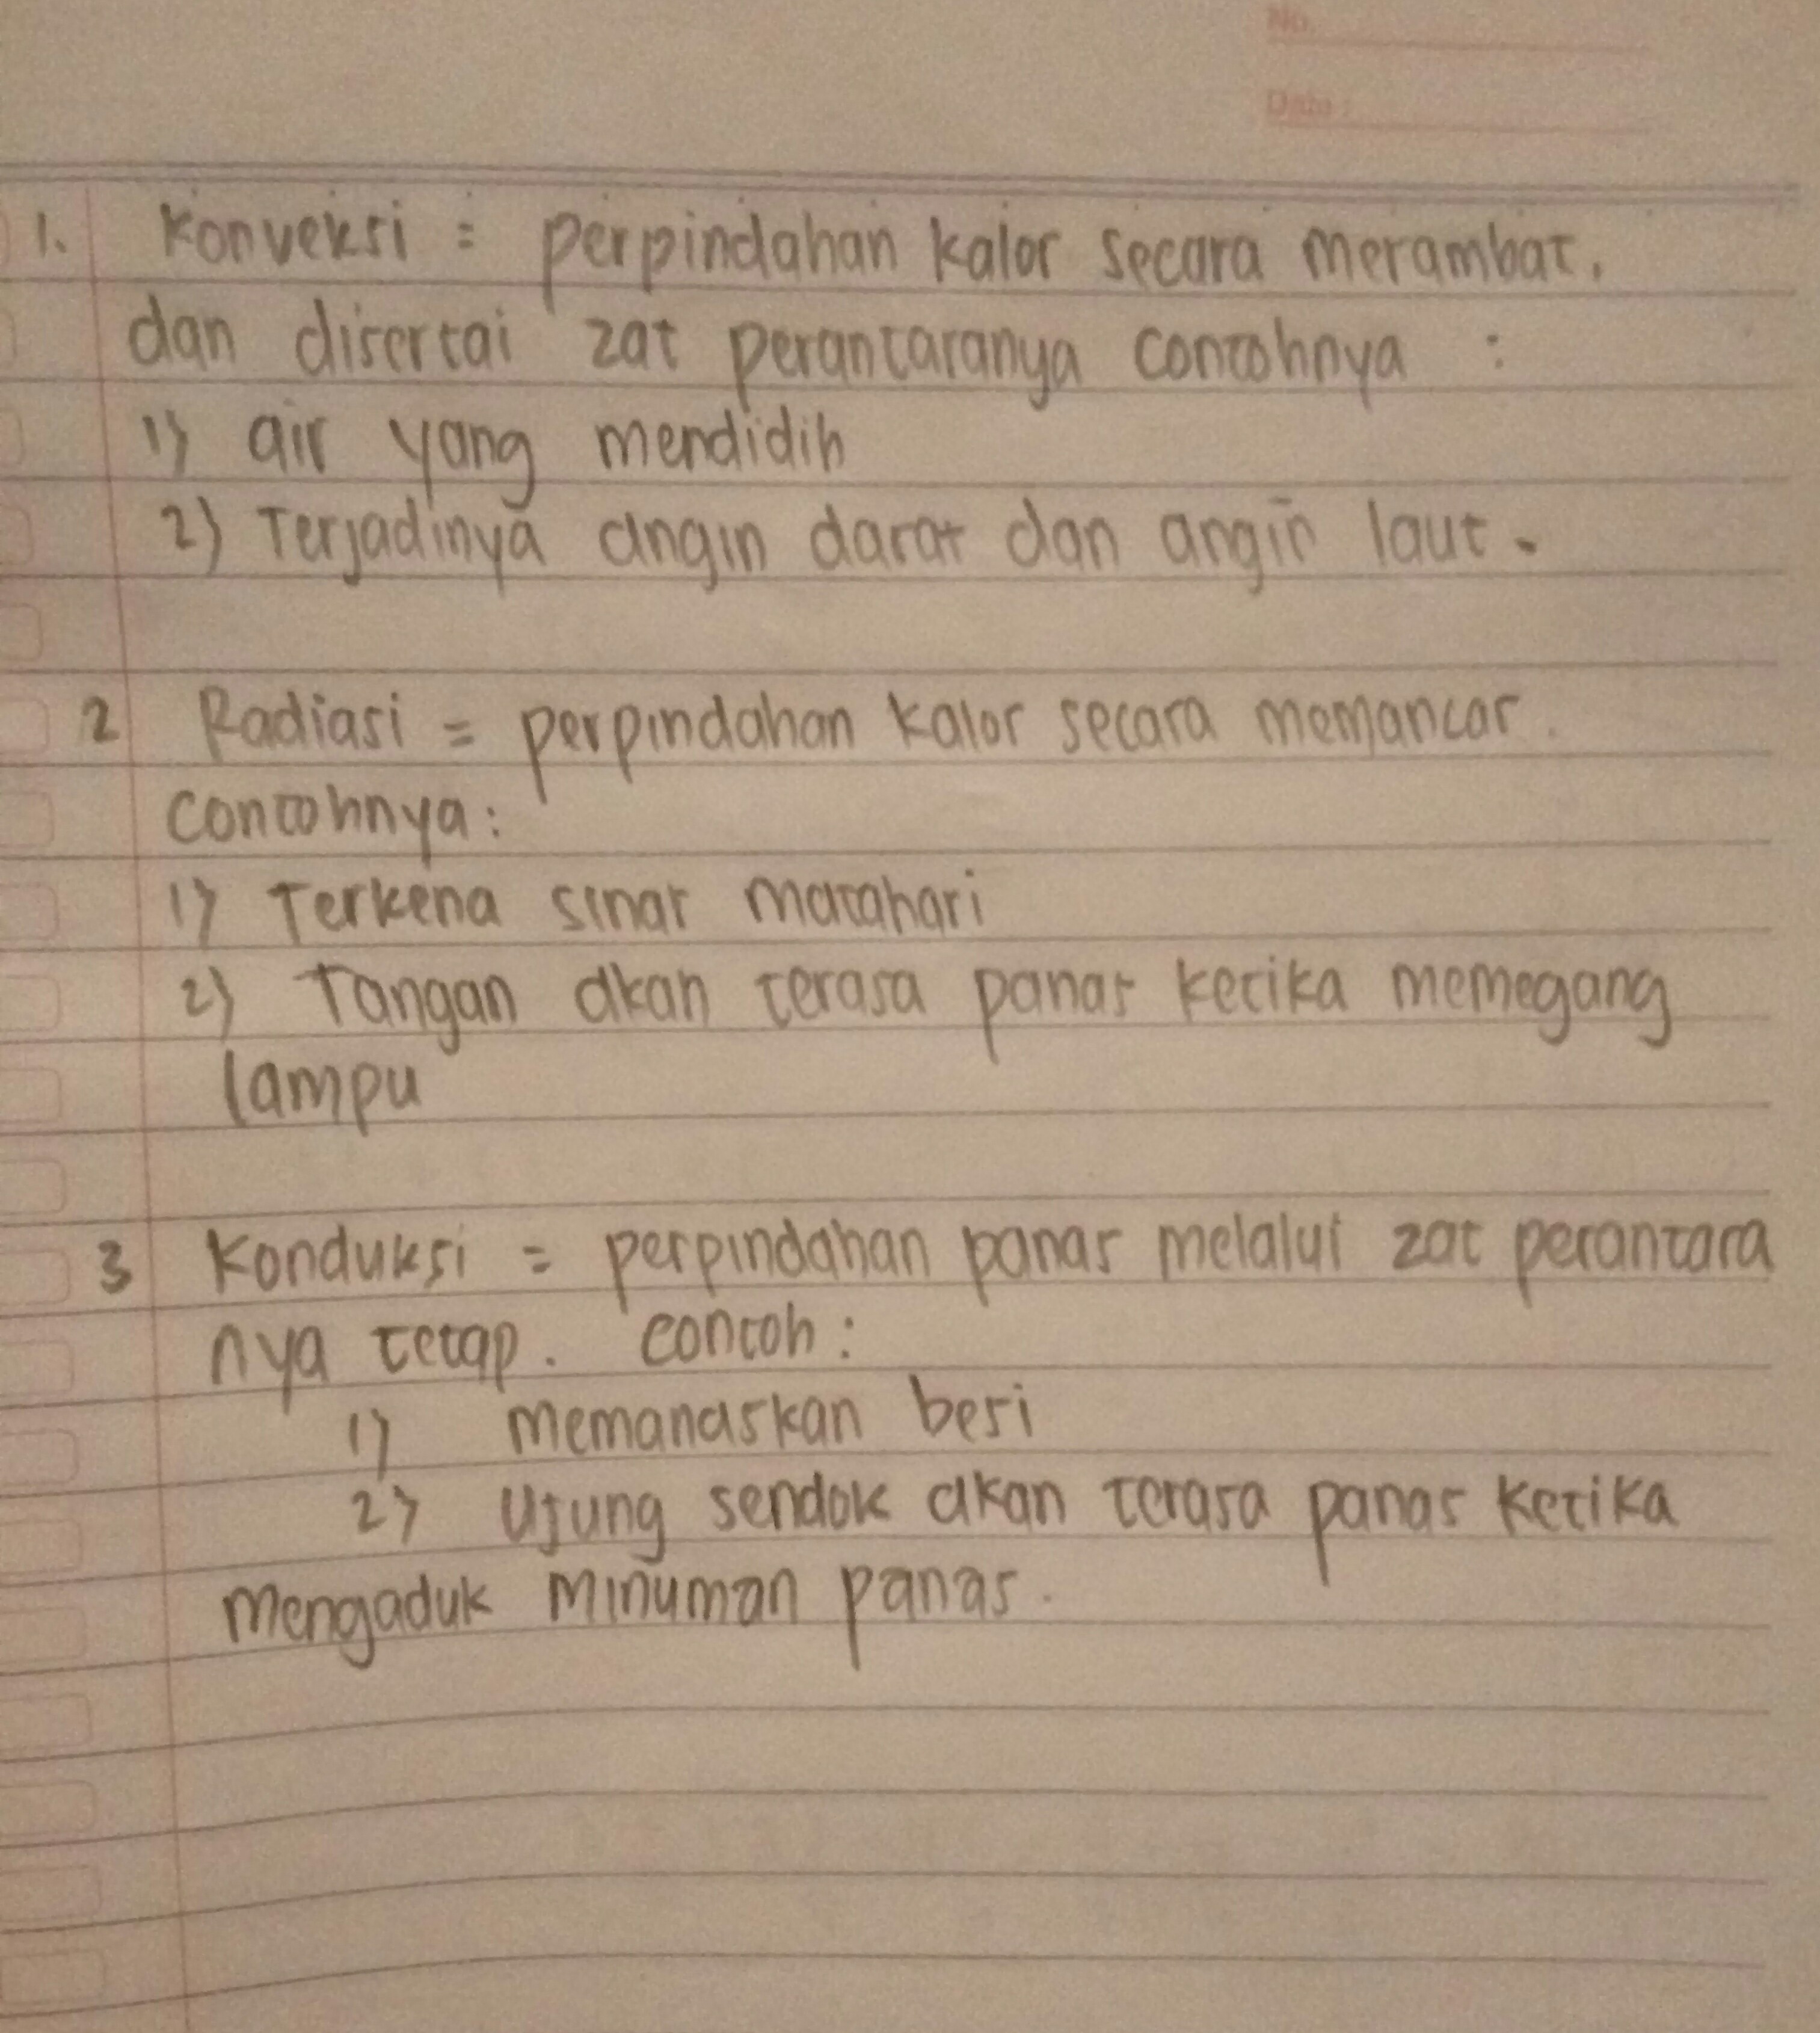 No.
Date :
1. Konveksi : perpindahan kalor secara merambat.
dan disertai zat perantaranya contohnya :
1) air yang mendidih
2) Terjadinya angin darat dan angin laut.
2 Radiasi = perpindahan kalor secara memancar.
contohnya:
1) Terkena sinar matahari
2) Tangan akan terasa panas ketika memegang
lampu
3 Konduksi = perpindahan panas melalui zat perantara
nya tetap. contoh :
1) Memanaskan besi
2) Ujung sendok akan terasa panas ketika
mengaduk minuman panas.